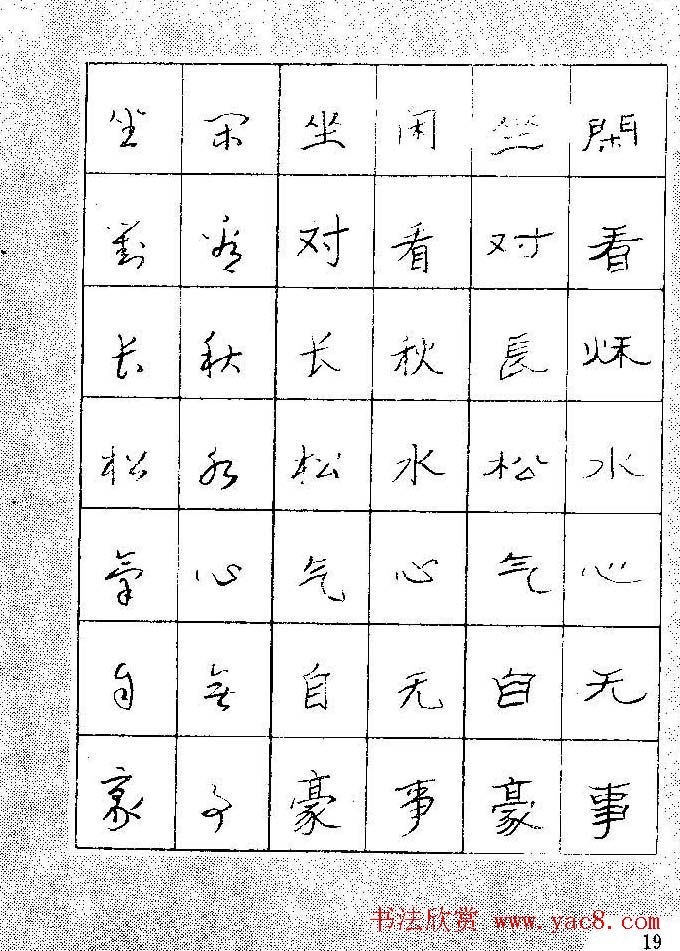 閑看秌水心无事
坐对長松气自豪
闲看秋水心无事
坐对长松气自豪
闲看秋水心無事
坐對长松氣自豪
书法欣赏 www.yac8.com
19